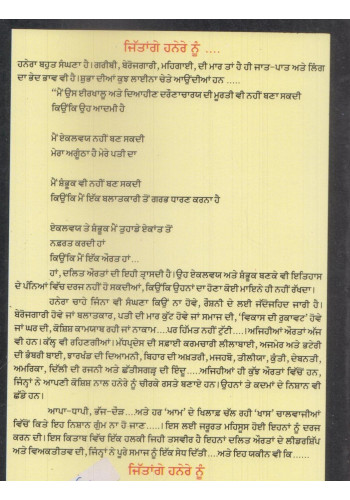 ਜਿੱਤਾਂਗੇ ਹਨੇਰੇ ਨੂੰ ....
ਹਨੇਰਾ ਬਹੁਤ ਸੰਘਣਾ ਹੈ। ਗਰੀਬੀ, ਬੇਰੋਜਗਾਰੀ, ਮਹਿਗਾਈ, ਦੀ ਮਾਰ ਤਾਂ ਹੈ ਹੀ ਜਾਤ-ਪਾਤ ਅਤੇ ਲਿੰਗ
ਦਾ ਭੇਦ ਭਾਵ ਵੀ ਹੈ। ਸ਼ੁਭਾ ਦੀਆਂ ਕੁਝ ਲਾਈਨਾਂ ਚੇਤੇ ਆਉਂਦੀਆਂ ਹਨ .....
"ਮੈਂ ਉਸ ਈਰਖਾਲੂ ਅਤੇ ਦਿਆਹੀਣ ਦਰੋਣਾਚਾਰਯ ਦੀ ਮੂਰਤੀ ਵੀ ਨਹੀਂ ਬਣਾ ਸਕਦੀ
ਕਿਉਂਕਿ ਉਹ ਆਦਮੀ ਹੈ
ਮੈਂ ਏਕਲਵਯ ਨਹੀਂ ਬਣ ਸਕਦੀ
ਮੇਰਾ ਅਗੂੰਠਾ ਹੈ ਮੇਰੇ ਪਤੀ ਦਾ
ਮੈਂ ਸ਼ੰਬੂਕ ਵੀ ਨਹੀਂ ਬਣ ਸਕਦੀ
ਕਿਉਂਕਿ ਮੈਂ ਇੱਕ ਬਲਾਤਕਾਰੀ ਤੋਂ ਗਰਭ ਧਾਰਣ ਕਰਨਾ ਹੈ
ਏਕਲਵਯ ਤੇ ਸ਼ੰਬੂਕ ਮੈਂ ਤੁਹਾਡੇ ਏਕਾਂਤ ਤੋਂ
ਨਫ਼ਰਤ ਕਰਦੀ ਹਾਂ
ਕਿਉਂਕਿ ਮੈਂ ਇੱਕ ਔਰਤ ਹਾਂ...
ਹਾਂ, ਦਲਿਤ ਔਰਤਾਂ ਦੀ ਇਹੀ ਤ੍ਰਾਸਦੀ ਹੈ। ਉਹ ਏਕਲਵਯ ਅਤੇ ਸ਼ੰਬੂਕ ਬਣਕੇ ਵੀ ਇਤਿਹਾਸ
ਦੇ ਪੰਨਿਆਂ ਵਿੱਚ ਦਰਜ ਨਹੀਂ ਹੋ ਸਕਦੀਆਂ, ਕਿਉਂਕਿ ਉਹਨਾਂ ਦਾ ਹੋਣਾ ਕੋਈ ਮਾਇਨੇ ਹੀ ਨਹੀਂ ਰੱਖਦਾ।
ਹਨੇਰਾ ਚਾਹੇ ਜਿੰਨਾ ਵੀ ਸੰਘਣਾ ਕਿਉਂ ਨਾ ਹੋਵੇ, ਰੌਸ਼ਨੀ ਦੇ ਲਈ ਜੱਦੋਜਹਿਦ ਜਾਰੀ ਹੈ।
ਬੇਰੋਜਗਾਰੀ ਹੋਵੇ ਜਾਂ ਬਲਾਤਕਾਰ, ਪਤੀ ਦੀ ਮਾਰ ਕੁੱਟ ਹੋਵੇ ਜਾਂ ਸਮਾਜ ਦੀ, 'ਵਿਕਾਸ ਦੀ ਰੁਕਾਵਟ' ਹੋਵੇ
ਜਾਂ ਘਰ ਦੀ, ਕੋਸ਼ਿਸ਼ ਕਾਮਯਾਬ ਰਹੀ ਜਾਂ ਨਾਕਾਮ....ਪਰ ਹਿੰਮਤ ਨਹੀਂ ਟੁੱਟੀ....। ਅਜਿਹੀਆਂ ਔਰਤਾਂ ਅੱਜ
ਵੀ ਹਨ। ਕੱਲ੍ਹ ਵੀ ਰਹਿਣਗੀਆਂ। ਮੱਧਪ੍ਰਦੇਸ਼ ਦੀ ਸਫ਼ਾਈ ਕਰਮਚਾਰੀ ਲੀਲਾਬਾਈ, ਅਜਮੇਰ ਅਤੇ ਭਟੇਰੀ
ਦੀ ਭੰਬਰੀ ਬਾਈ, ਝਾਰਖੰਡ ਦੀ ਦਿਆਮਨੀ, ਬਿਹਾਰ ਦੀ ਅਖ਼ਤਰੀ, ਮਜਹਬੋ, ਤੀਲੀਯਾ, ਕੁੰਤੀ, ਦੇਬਨਤੀ,
ਅਮਰਿਕਾ, ਦਿੱਲੀ ਦੀ ਰਜਨੀ ਅਤੇ ਛੱਤੀਸਗੜ੍ਹ ਦੀ ਇੰਦੂ....ਅਜਿਹੀਆਂ ਹੀ ਕੁੱਝ ਔਰਤਾਂ ਵਿੱਚੋਂ ਹਨ,
ਜਿੰਨ੍ਹਾਂ ਨੇ ਆਪਣੀ ਕੋਸ਼ਿਸ਼ ਨਾਲ ਹਨੇਰੇ ਨੂੰ ਚੀਰਕੇ ਰਸਤੇ ਬਣਾਏ ਹਨ। ਉਹਨਾਂ ਤੇ ਕਦਮਾਂ ਦੇ ਨਿਸ਼ਾਨ ਵੀ
ਛੱਡੇ ਹਨ।
ਆਪਾ-ਧਾਪੀ, ਭੱਜ-ਦੌੜ...ਅਤੇ ਹਰ 'ਆਮ' ਦੇ ਖਿਲਾਫ਼ ਚੱਲ ਰਹੀ 'ਖਾਸ' ਚਾਲਬਾਜੀਆਂ
ਵਿੱਚੋਂ ਕਿਤੇ ਇਹ ਨਿਸ਼ਾਨ ਗੁੰਮ ਨਾ ਹੋ ਜਾਣ.....। ਇਸ ਲਈ ਜਰੂਰਤ ਮਹਿਸੂਸ ਹੋਈ ਇਹਨਾਂ ਨੂੰ ਦਰਜ
ਕਰਨ ਦੀ। ਇਸ ਕਿਤਾਬ ਵਿੱਚ ਇੱਕ ਹਲਕੀ ਜਿਹੀ ਤਸਵੀਰ ਹੈ ਇਹਨਾਂ ਦਲਿਤ ਔਰਤਾਂ ਦੇ ਲੀਡਰਸ਼ਿੱਪ
ਅਤੇ ਵਿਅਕਤੀਤਵ ਦੀ, ਜਿੰਨ੍ਹਾਂ ਨੇ ਪੂਰੇ ਸਮਾਜ ਨੂੰ ਇੱਕ ਸੇਧ ਦਿੱਤੀ....ਅਤੇ ਇਹ ਯਕੀਨ ਵੀ ਕਿ .......
ਜਿੱਤਾਂਗੇ ਹਨੇਰੇ ਨੂੰ